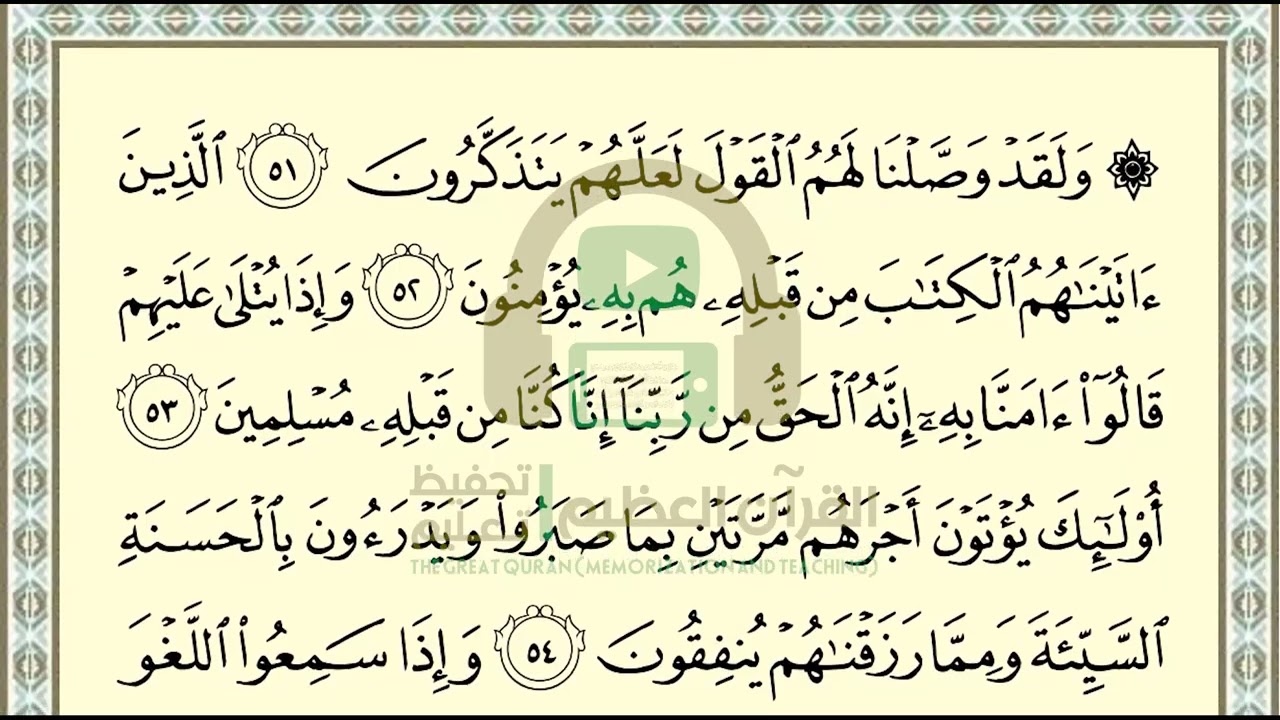 ۞ وَلَقَدْ وَصَّلْنَا لَهُمُ ٱلْقَوْلَ لَعَلَّهُمْ يَتَذَكَّرُونَ ٥١ ٱلَّذِينَ
ءَاتَيْنَٰهُمُ ٱلْكِتَٰبَ مِن قَبْلِهِۦ هُم بِهِۦ يُؤْمِنُونَ ٥٢ وَإِذَا يُتْلَىٰ عَلَيْهِمْ
قَالُوٓا۟ ءَامَنَّا بِهِۦٓ إِنَّهُ ٱلْحَقُّ مِن رَّبِّنَآ إِنَّا كُنَّا مِن قَبْلِهِۦ مُسْلِمِينَ ٥٣
القرآن العظيم | تحفيظ تعليم
أُو۟لَٰٓئِكَ يُؤْتَوْنَ أَجْرَهُم مَّرَّتَيْنِ بِمَا صَبَرُوا۟ وَيَدْرَءُونَ بِٱلْحَسَنَةِ
THE GREAT QURAN (MEMORIZATION AND TEACHING)
ٱلسَّيِّئَةَ وَمِمَّا رَزَقْنَٰهُمْ يُنفِقُونَ ٥٤ وَإِذَا سَمِعُوا۟ ٱللَّغْوَ